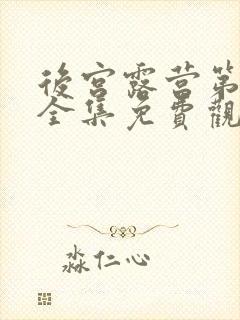 後宮露营第
全集免費觀
淼仁心